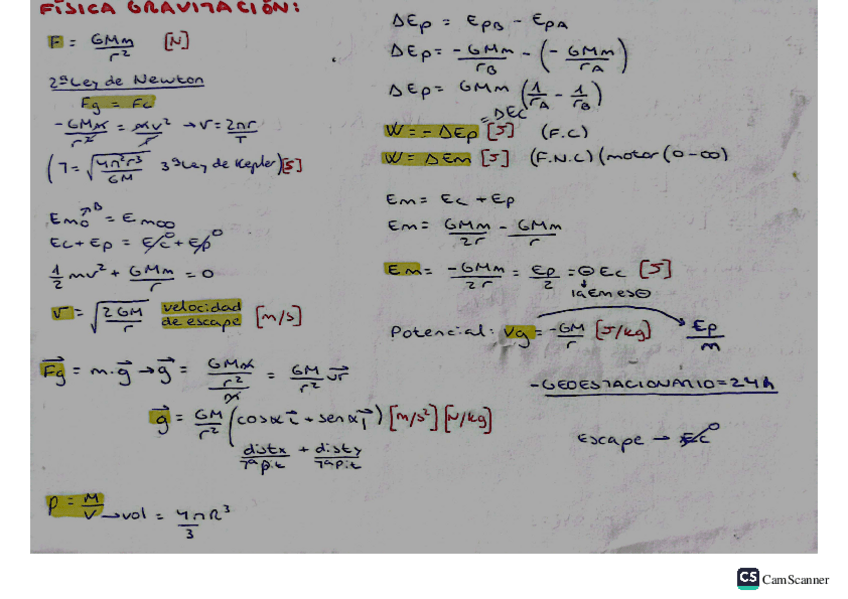 FÍSICA GRAVITACIÓN:
F = GMm/r² [N]
2ª Ley de Newton
Fg = Fc
-GMm/r² = mv²/r → v = 2πr/T
(T = √(4π²r³/GM) 3ª Ley de Kepler) [s]
Em₀ → B = Em∞
Ec + Ep = Ec⁰ + Ep⁰
1/2 mv² + GMm/r = 0
v = √(2GM/r) velocidad de escape [m/s]
Fg = m · g → g = GMm/r²/m = GM/r² ur
g = GM/r² (cosα i + senα j) [m/s²] [N/kg]
distx/Tªpit + disty/Tªpit
ρ = M/V → vol = 4πR³/3
ΔEp = EpB - EpA
ΔEp = -GMm/rB - (-GMm/rA)
ΔEp = GMm (1/rA - 1/rB)
W = -ΔEp = ΔEc [J] (F.C)
W = ΔEm [J] (F.N.C) (motor (0-∞)
Em = Ec + Ep
Em = GMm/2r - GMm/r
Em = -GMm/2r = Ep/2 = ⊖ Ec [J]
la Em es ⊖
Potencial: Vg = -GM/r [J/kg] → Ep/m
- GEOESTACIONARIO = 24h
Escape → Ec⁰
CS CamScanner